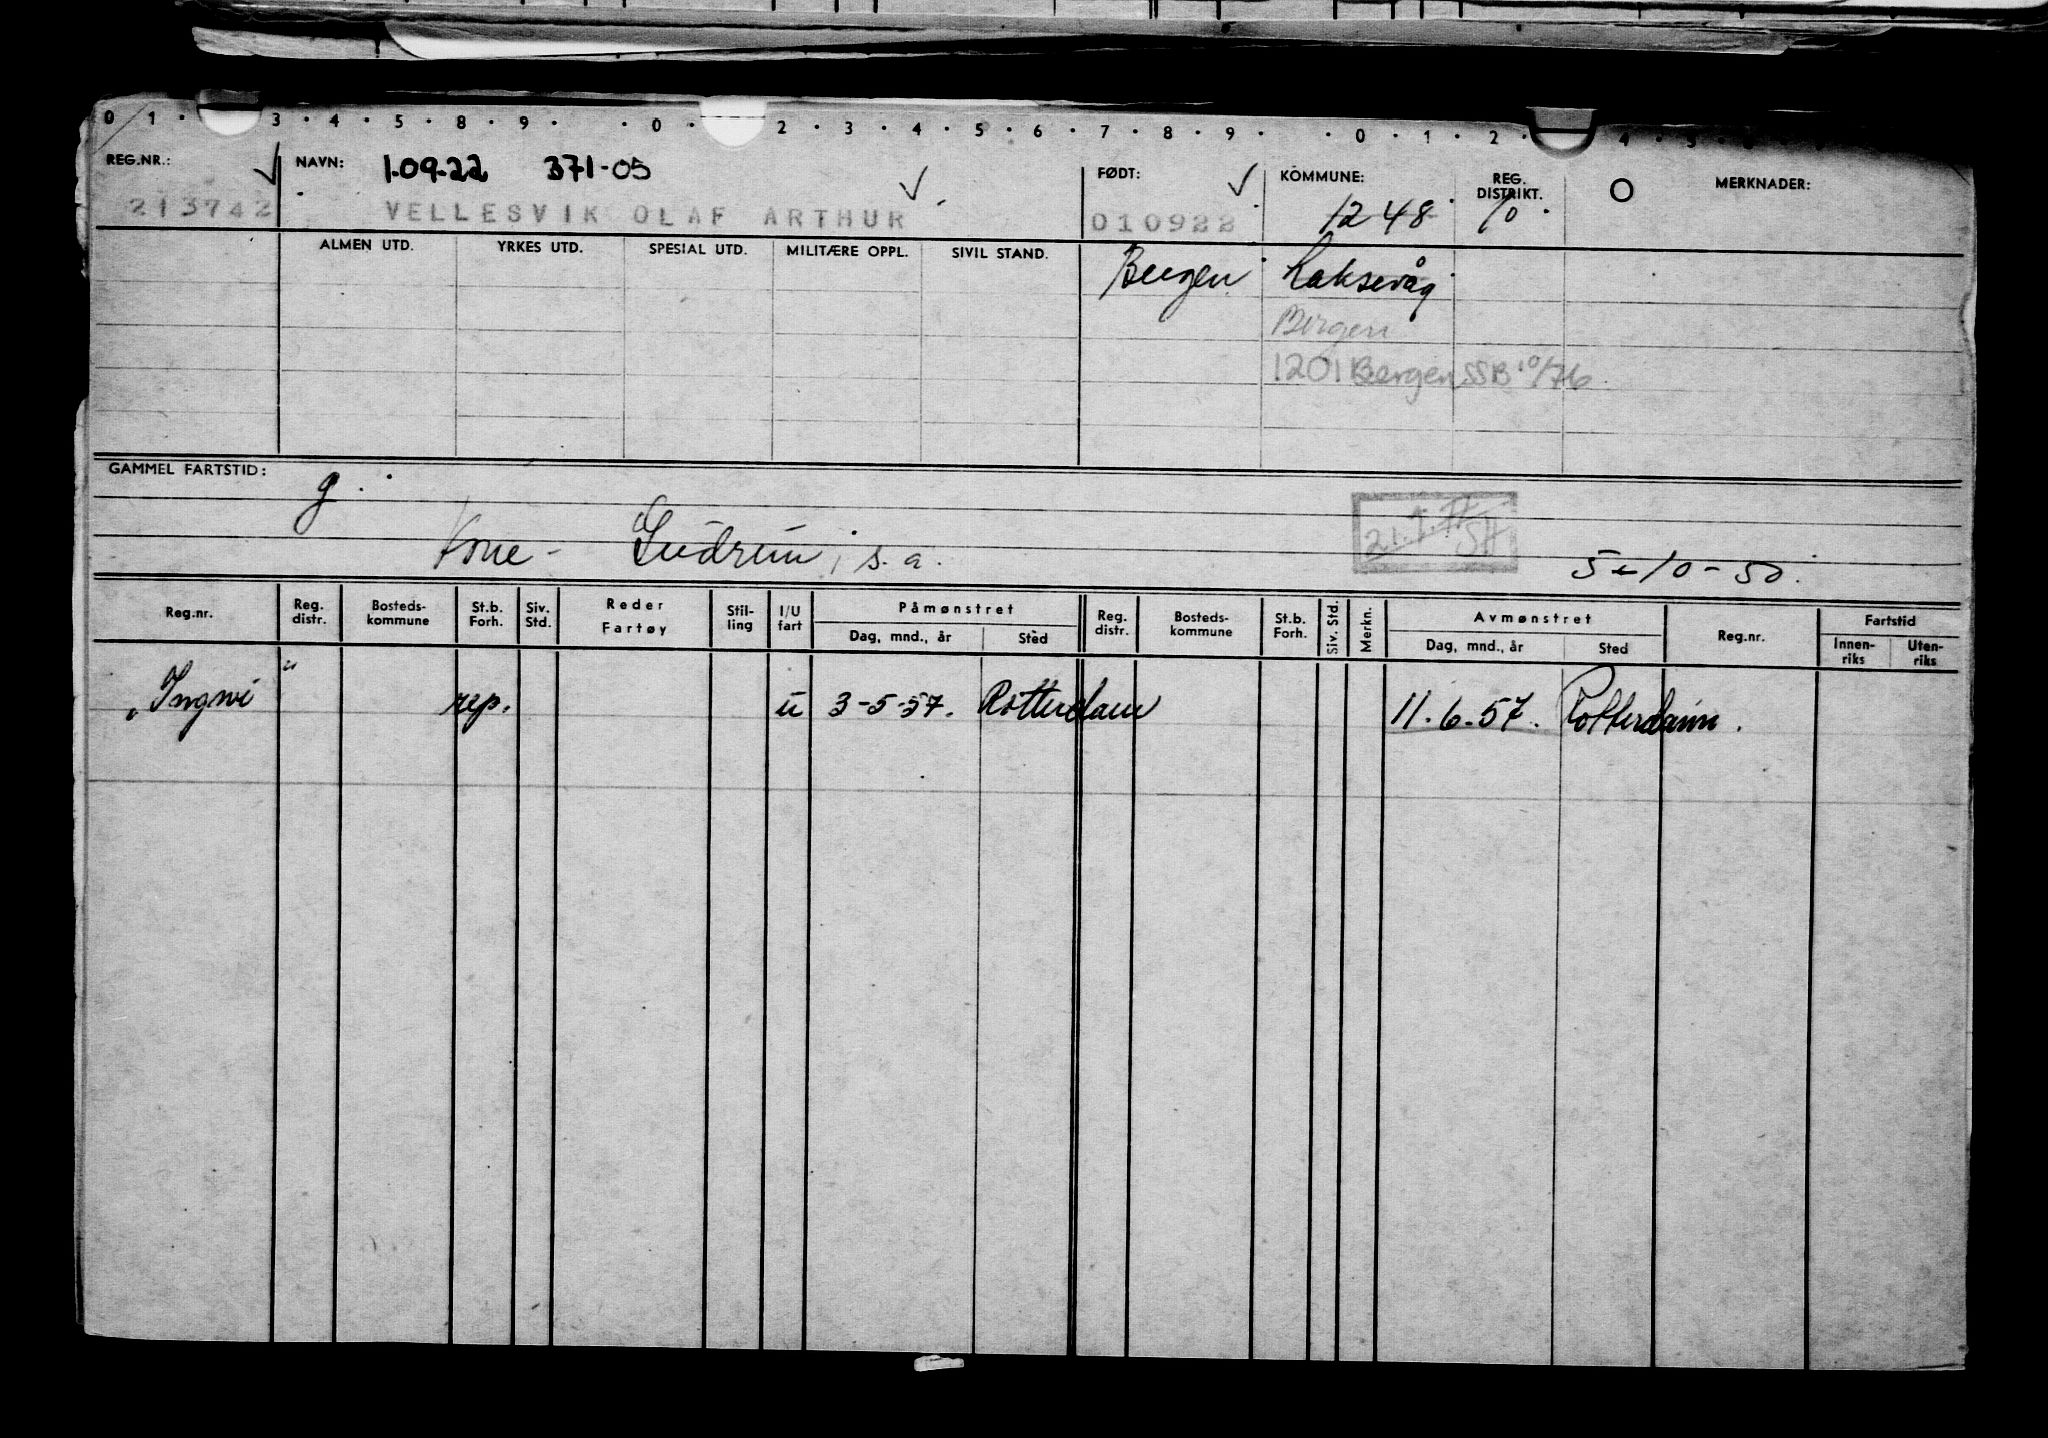 0 1 · 3 · 4 · 5 · 8 · 9 · · 0 · 2 · 3 · 4 · 5 · 6 · 7 · 8 · 9 · · 0 · 1 · 2 · 4 · 5
REG.NR.: NAVN: 1.09.22 371-05 FØDT: KOMMUNE: REG. DISTRIKT. O MERKNADER:
213742 VELLESVIK OLAF ARTHUR 010922 1248 10
ALMEN UTD. YRKES UTD. SPESIAL UTD. MILITÆRE OPPL. SIVIL STAND. Bergen Laksevåg
Bergen
1201 Bergen SSB 10/76
GAMMEL FARTSTID: g.
Kone - Gudrun, s.a. 5-10-50.
Reg.nr. Reg. distr. Bosteds-kommune St.b. Forh. Siv. Std. Reder Fartøy Stil-ling I/U fart Påmønstret Dag, mnd., år Sted Reg. distr. Bosteds-kommune St.b. Forh. Siv. Std. Merkn. Avmønstret Dag, mnd., år Sted Reg.nr. Fartstid Innen-riks Uten-riks
"Ingwi" rep. u 3-5-57. Rotterdam 11.6.57. Rotterdam.